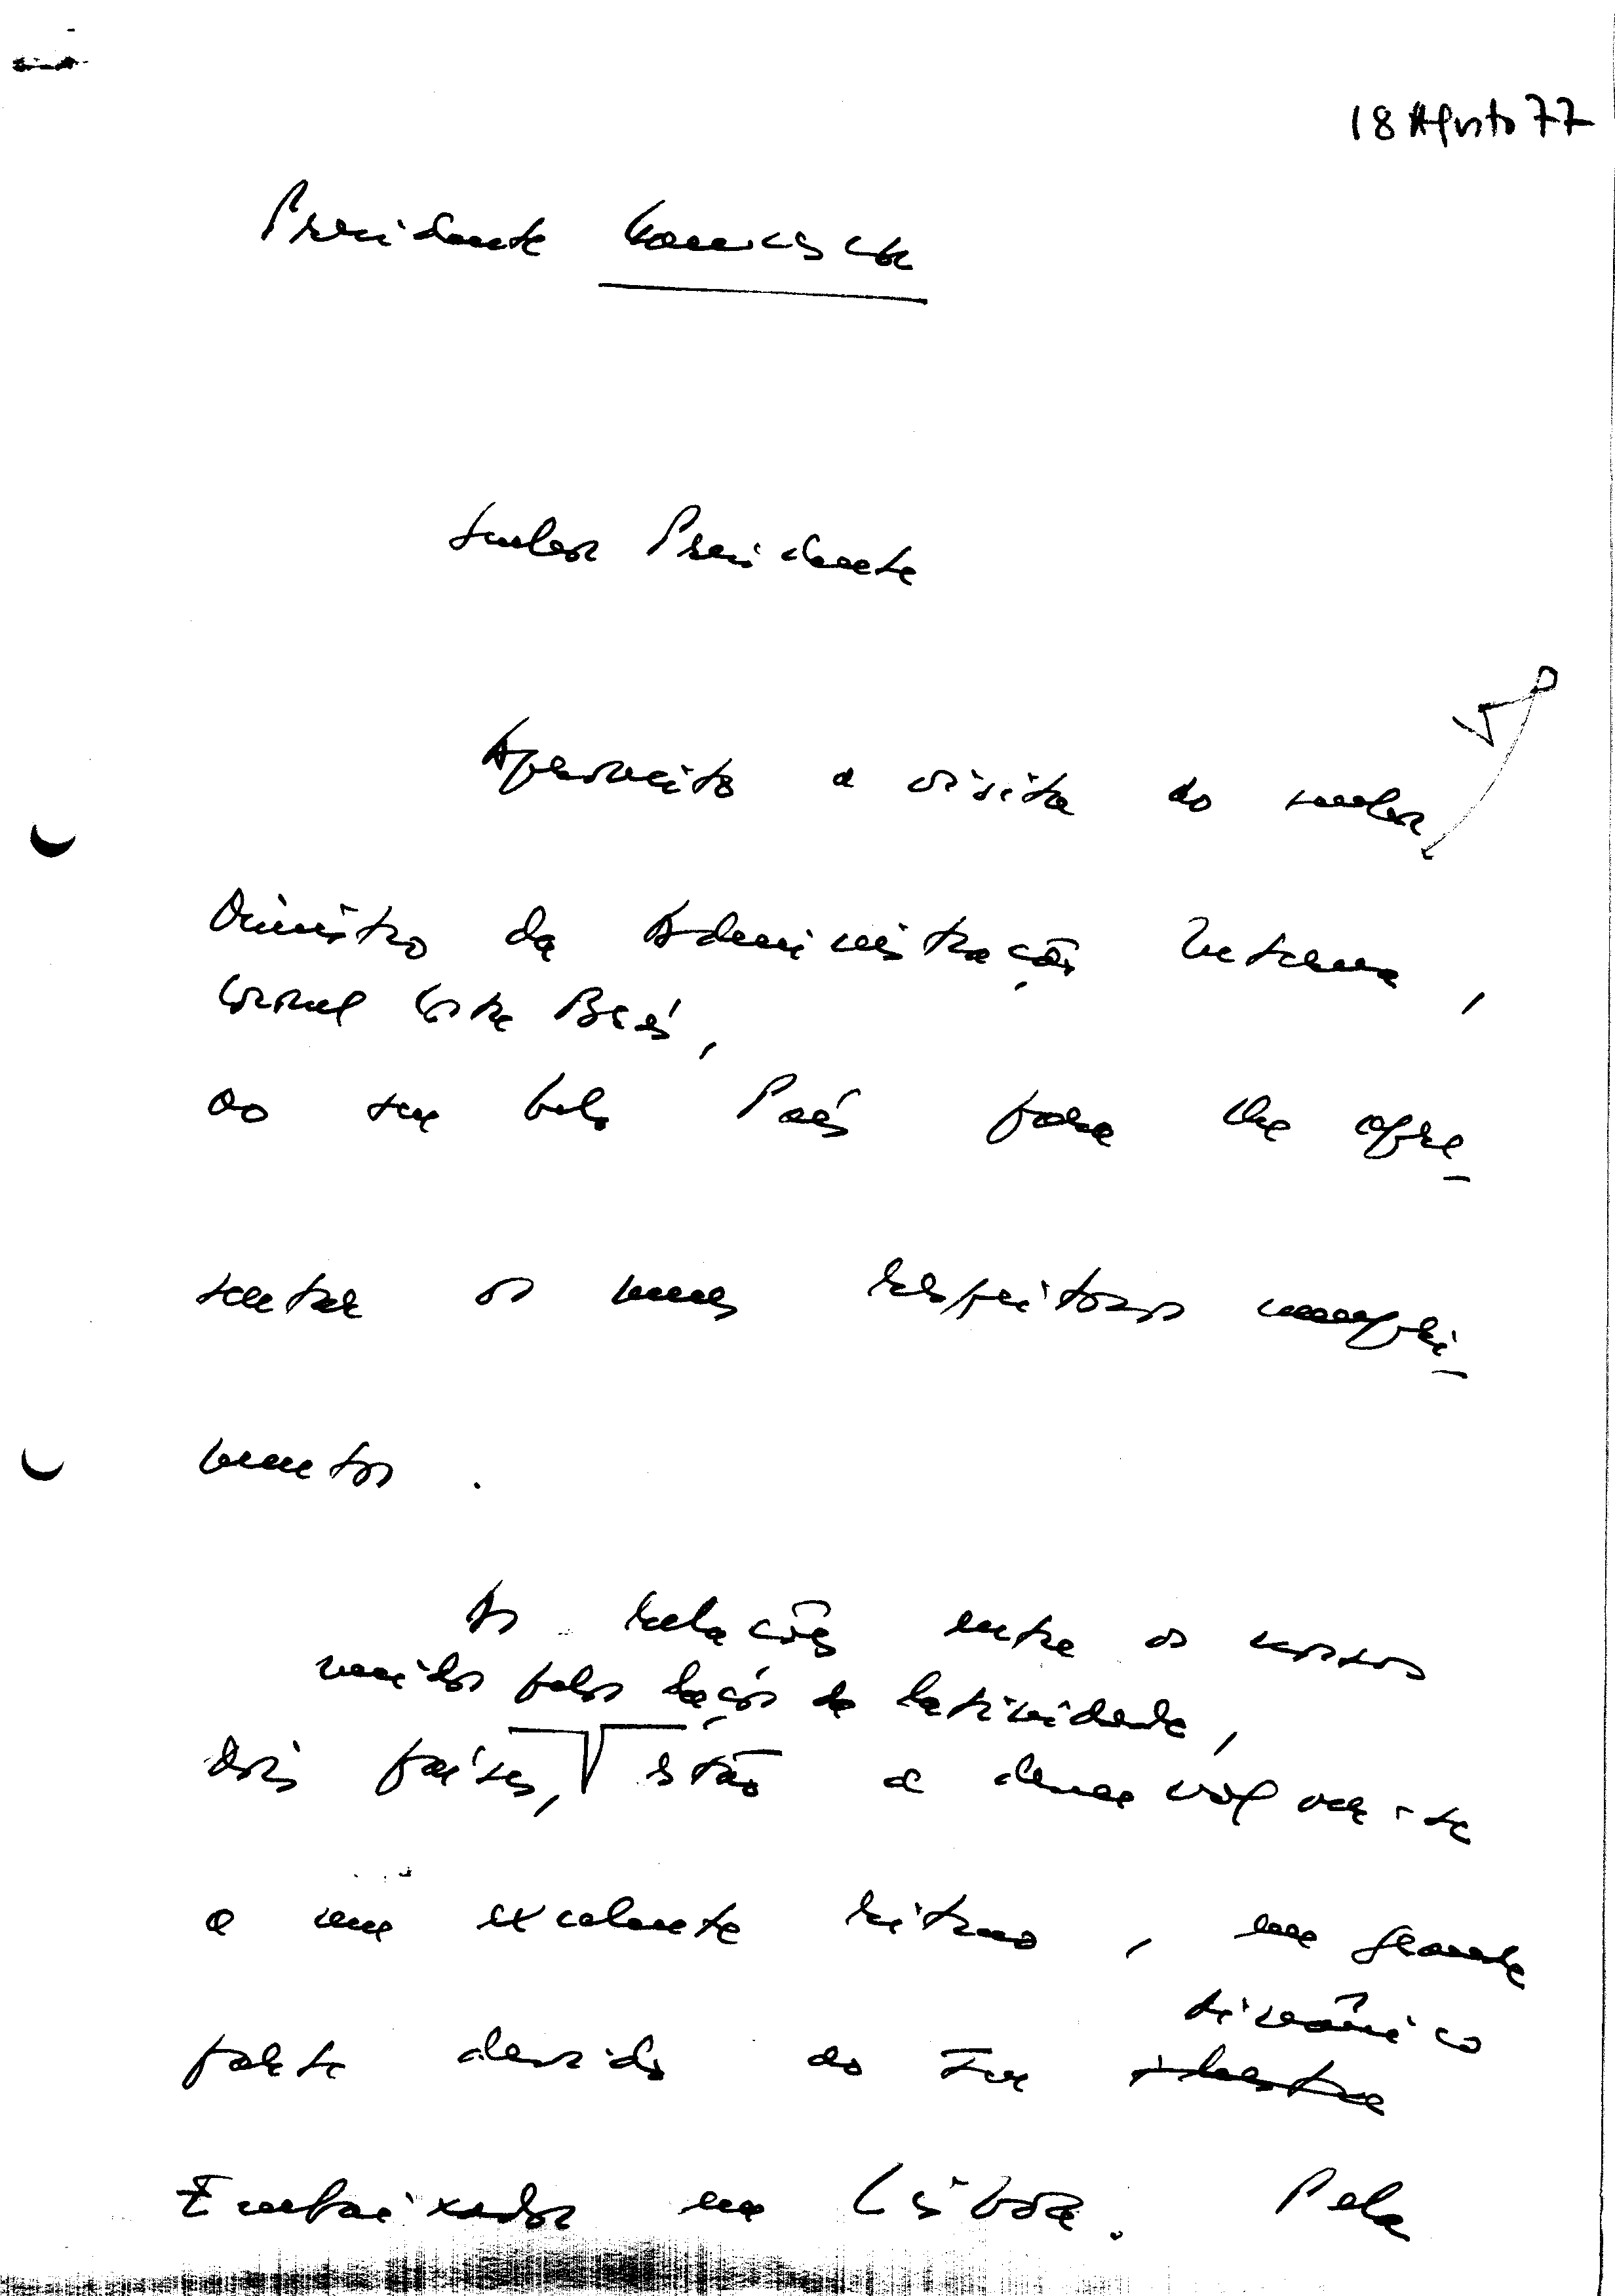 18 Agosto 77
Presidente Ceausescu
Senhor Presidente
Aproveito a visita do senhor
Ministro da Administração Interna,
Coronel Costa Brás,
ao seu belo País para lhe apre_
sentar os meus respeitosos cumpri_
mentos.
As relações entre os nossos
unidos pelos laços da latinidade,
dois países, estão a desenvolver-se
a um excelente ritmo, em grande
dinâmico
parte devido ao seu ilustre
Embaixador em Lisboa. Pela